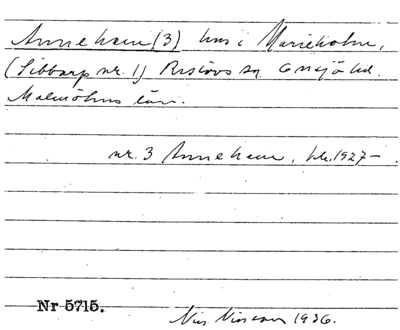 Annehem (3) hus i Marieholm,
(Sibbarp nr. 1) Reslövs sn, Onsjö hd.
Malmöhus län.
nr. 3 Annehem, bb. 1927–.
Nr 5715.
Nils Nilsson 1936.